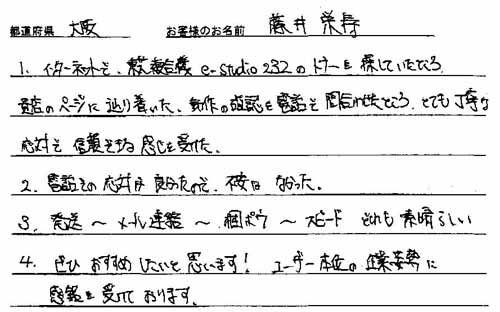 都道府県 大阪 お客様のお名前 藤井 栄寿
1. インターネットで、東芝複合機 e-studio 232のトナーを探していたところ
貴店のページに辿り着いた、動作の確認を電話で問合わせたところ、とても丁寧な
応対で信頼できる感じを受けた。
2. 電話での応対が良かったので、不安はなかった。
3. 発送 〜 メール連絡 〜 梱ポウ 〜 スピード どれも素晴らしい
4. ぜひおすすめしたいと思います! ユーザー本位の企業姿勢に
感銘を受けております。